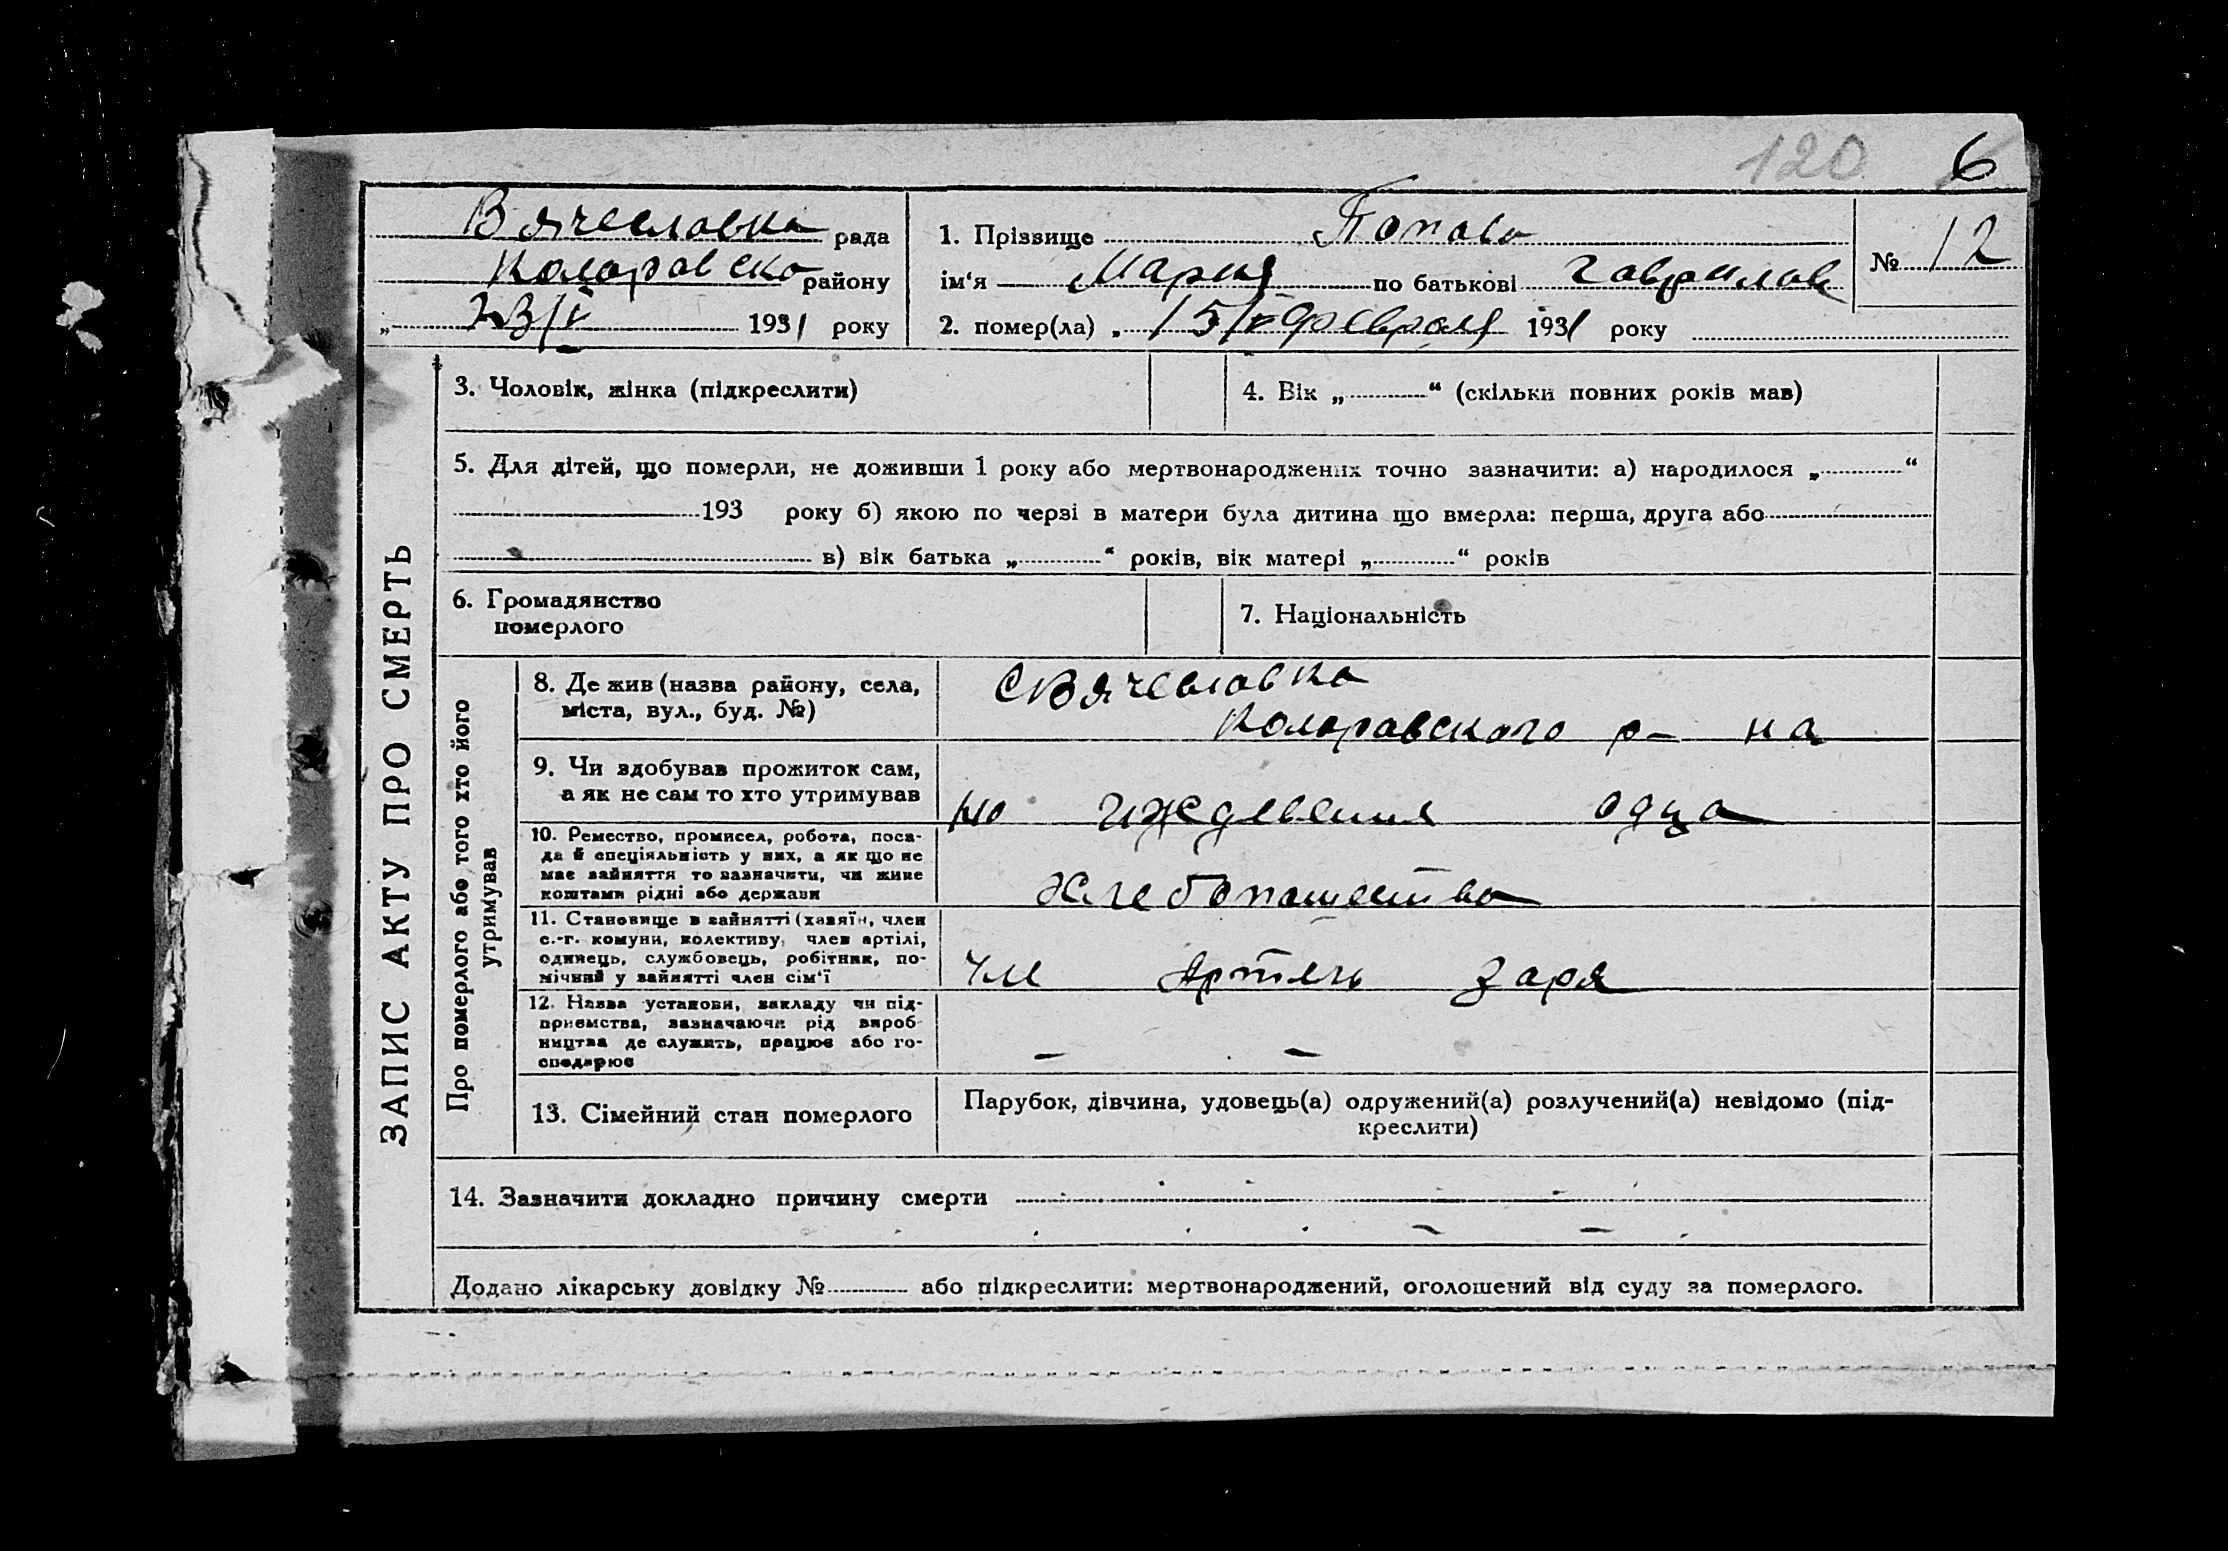 120 6
Вячеславка рада
Коларовско району
„ 23/II 1931 року
1. Прізвище Попова
ім‘я Мария по батькові Гаврилов
2. помер(ла) „ 15/II Февраля 1931 року
№ 12
ЗАПИС АКТУ ПРО СМЕРТЬ
3. Чоловік, жінка (підкреслити)
4. Вік „ “ (скільки повних років мав)
5. Для дітей, що померли, не доживши 1 року або мертвонароджених точно зазначити: а) народилося „ “
193 року б) якою по черзі в матери була дитина що вмерла: перша, друга або
в) вік батька „ “ років, вік матері „ “ років
6. Громадянство
померлого
7. Національність
Про померлого або того хто його
утримував
8. Де жив (назва району, села,
міста, вул., буд. №)
С Вячеславка
Коларавского р-на
9. Чи здобував прожиток сам,
а як не сам то хто утримував
на иждевения одца
10. Ремество, промисел, робота, поса-
да й спеціяльність у них, а як що не
має зайняття то зазначити, чи живе
коштами рідні або держави
Хлебопашество
11. Становище в зайнятті (хазяїн, член
с.-г. комуни, колективу, член артілі,
одинець, службовець, робітник, по-
мічний у зайнятті член сім‘ї
Чле Артель Заря
12. Назва установи, закладу чи під-
приємства, зазначаючи рід вироб-
ництва де служить, працює або го-
сподарює
- -
13. Сімейний стан померлого
Парубок, дівчина, удовець(а) одружений(а) розлучений(а) невідомо (під-
креслити)
14. Зазначити докладно причину смерти
Додано лікарську довідку № або підкреслити: мертвонароджений, оголошений від суду за померлого.